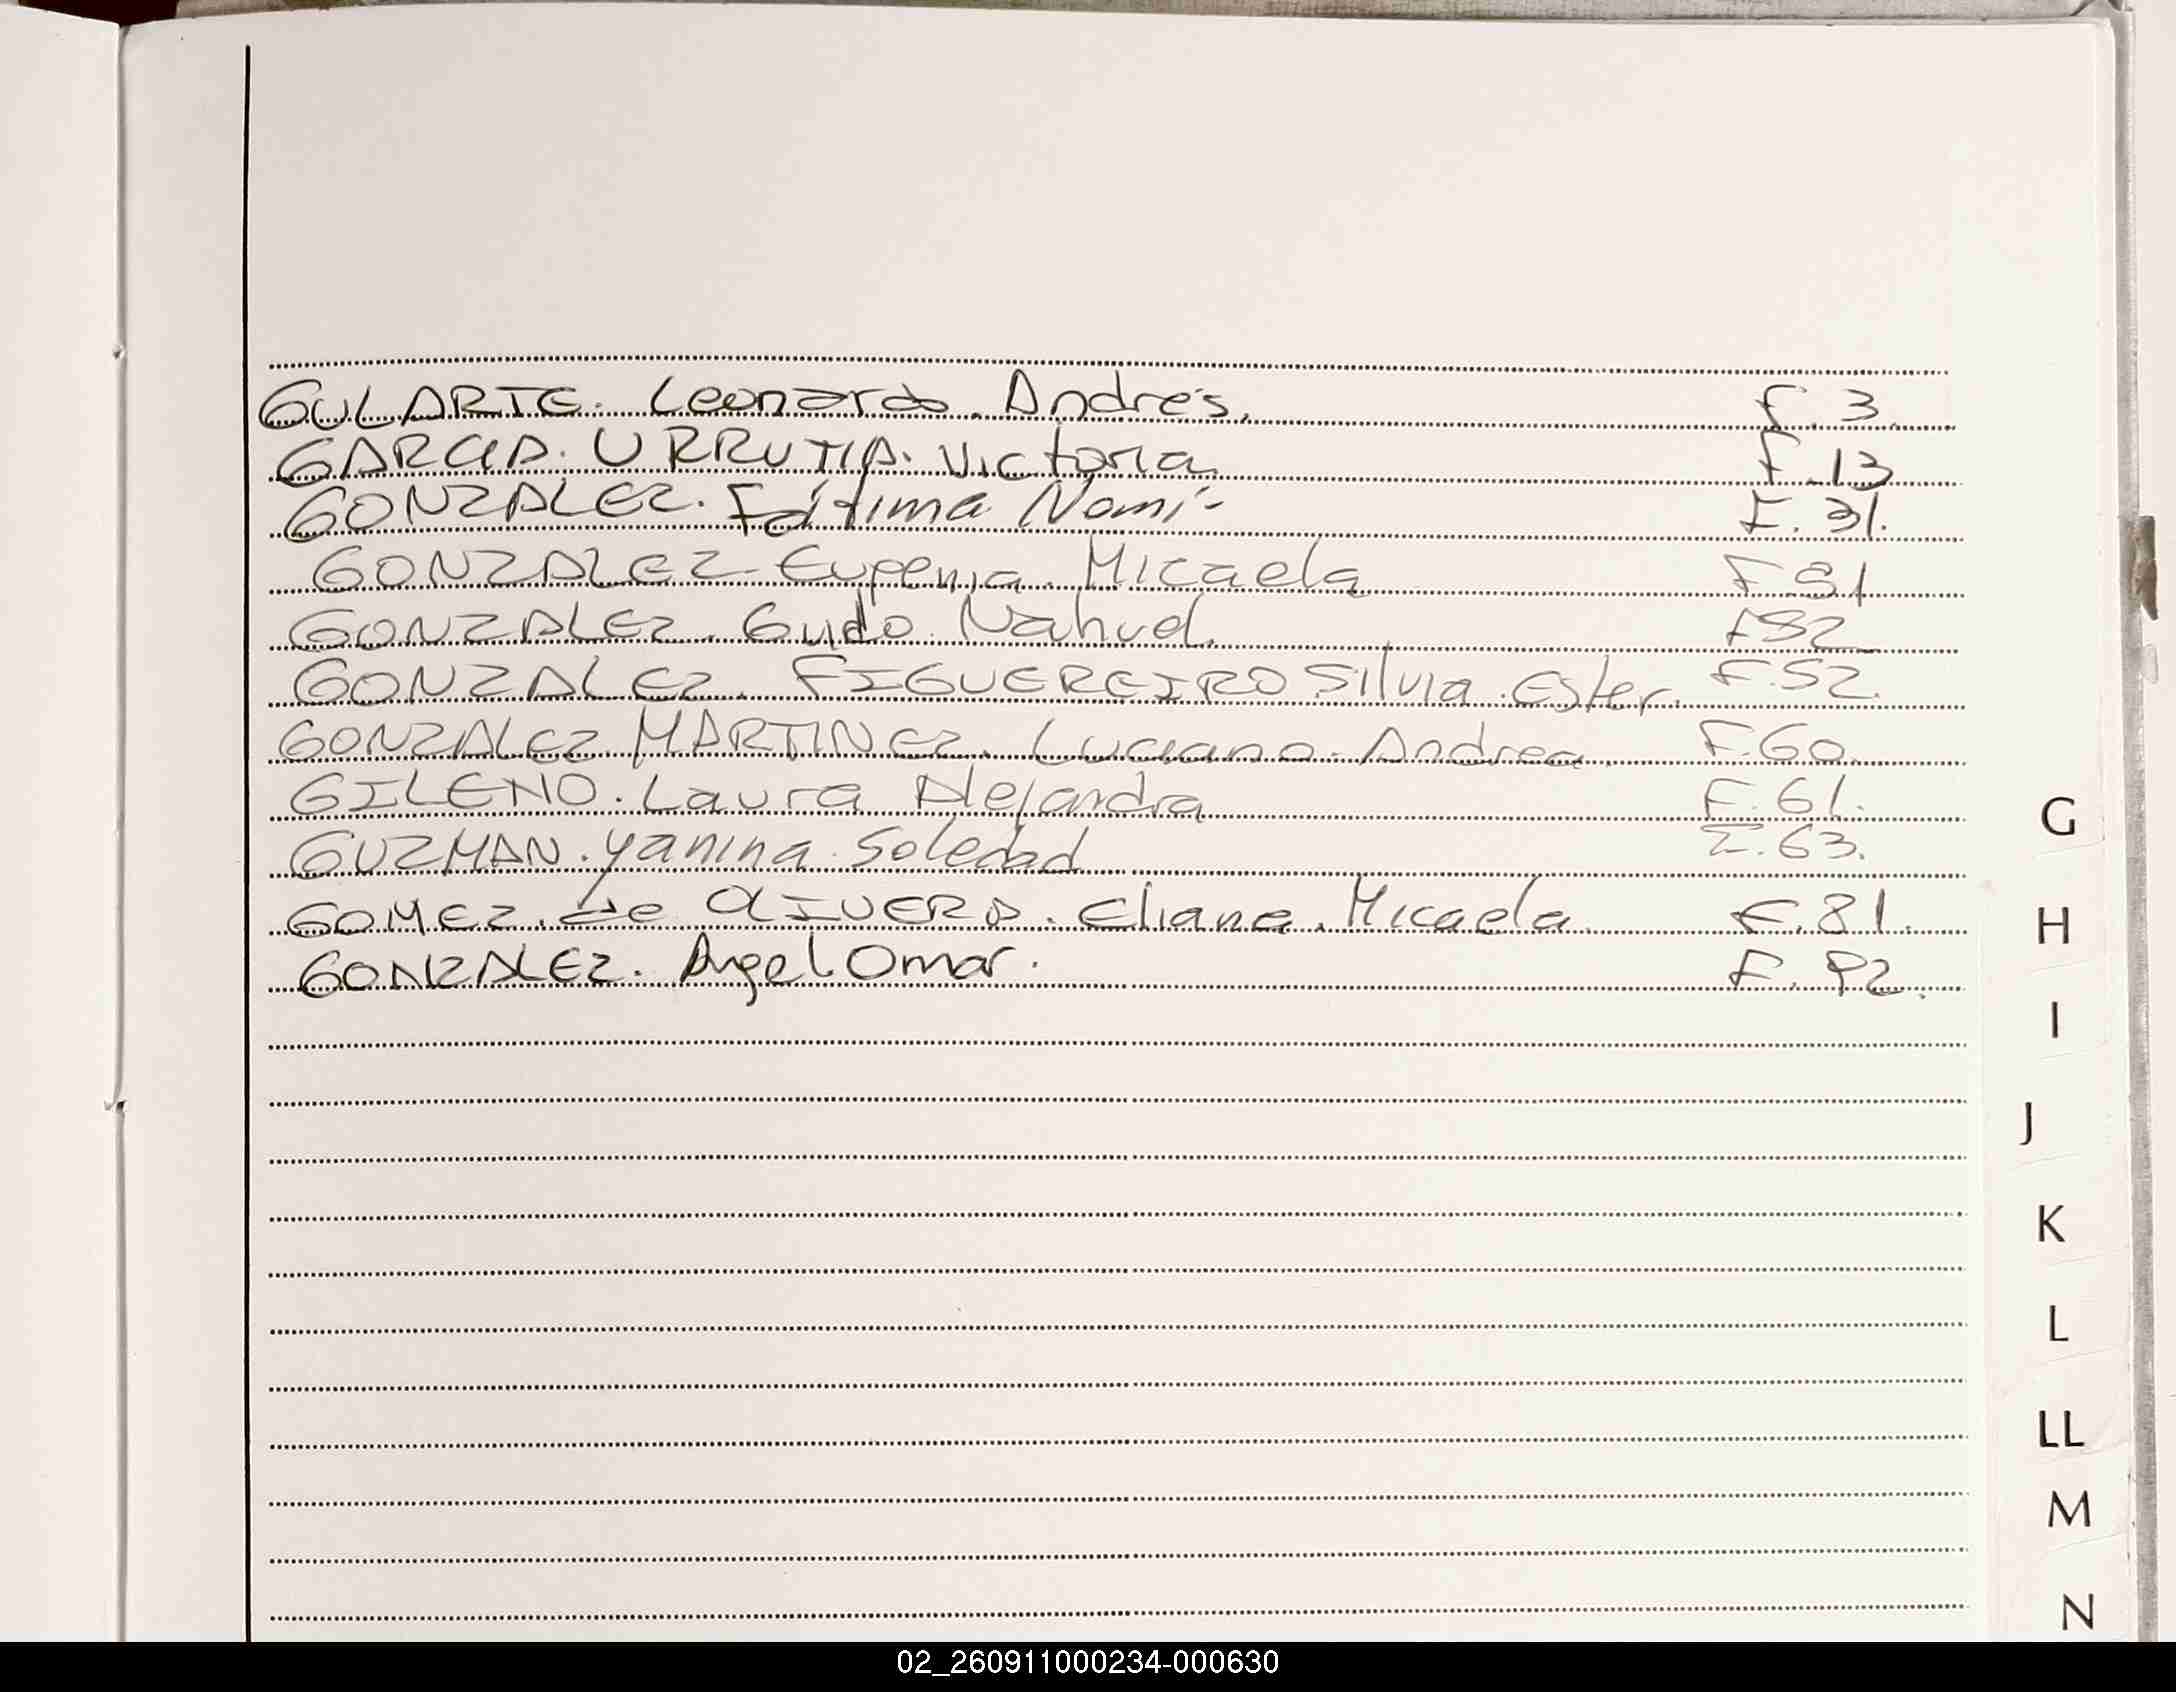 GULARTE. Leonardo. Andrés. F. 3.
GARCIA. URRUTIA. Victoria F. 13
GONZALEZ. Fátima Nomí- F. 31.
GONZALEZ Eugenia. Micaela F 31
GONZALEZ. Guido. Nahuel. F 32
GONZALEZ. FIGUEREIRO Silvia. Ester. F. 52.
GONZALEZ MARTINEZ. Luciano. Andrea. F. 60.
GILENO. Laura Alejandra F. 61.
GUZMAN. Yanina. Soledad F. 63.
GOMEZ. de OLIVERA. Eliana. Micaela. F. 81.
GONZALEZ. Angel Omar. F. 92.
G
H
I
J
K
L
LL
M
N
02_260911000234-000630